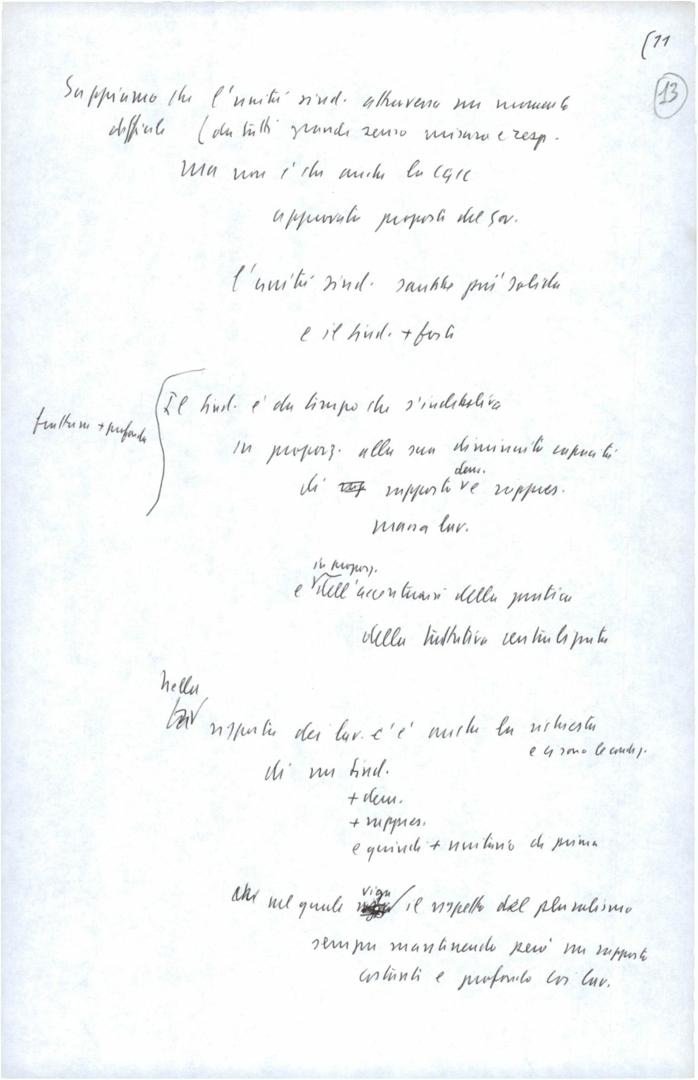 (11
13
Sappiamo che l'unità sind. attraversa un momento
difficile (da tutti grande senso misura e resp.
Ma non è che anche la CGIL
approvata proposta del Gov.
l'unità sind. sarebbe più solida
e il sind. + forte
Il sind. è da tempo che s'indeboliva
fratture + profonde
in proporz. alla sua diminuita capacità
di rapporto e rappres.
dem.
massa lav.
in proporz.
e dell'accentuarsi della pratica
della trattativa centralizzata
Nella
risposta dei lav. c'è anche la richiesta
e ci sono le condiz.
di un sind.
+ dem.
+ rappres.
e quindi + unitario di prima
nel quale viga il rispetto del pluralismo
sempre mantenendo però un rapporto
costante e profondo coi lav.